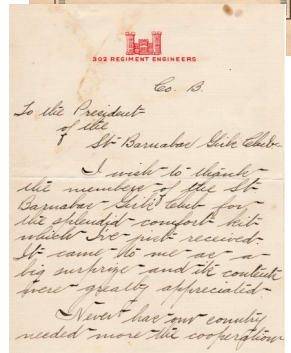 302 REGIMENT ENGINEERS
Co. B.
To the President
of the
St Barnabas Girls Club-
I wish to thank
the members of the St
Barnabas Girls Club for
the splendid comfort kit
which I've just received
It came to me as a
big surprize and its contents
were greatly appreciated-
Never has our country
needed more the cooperation